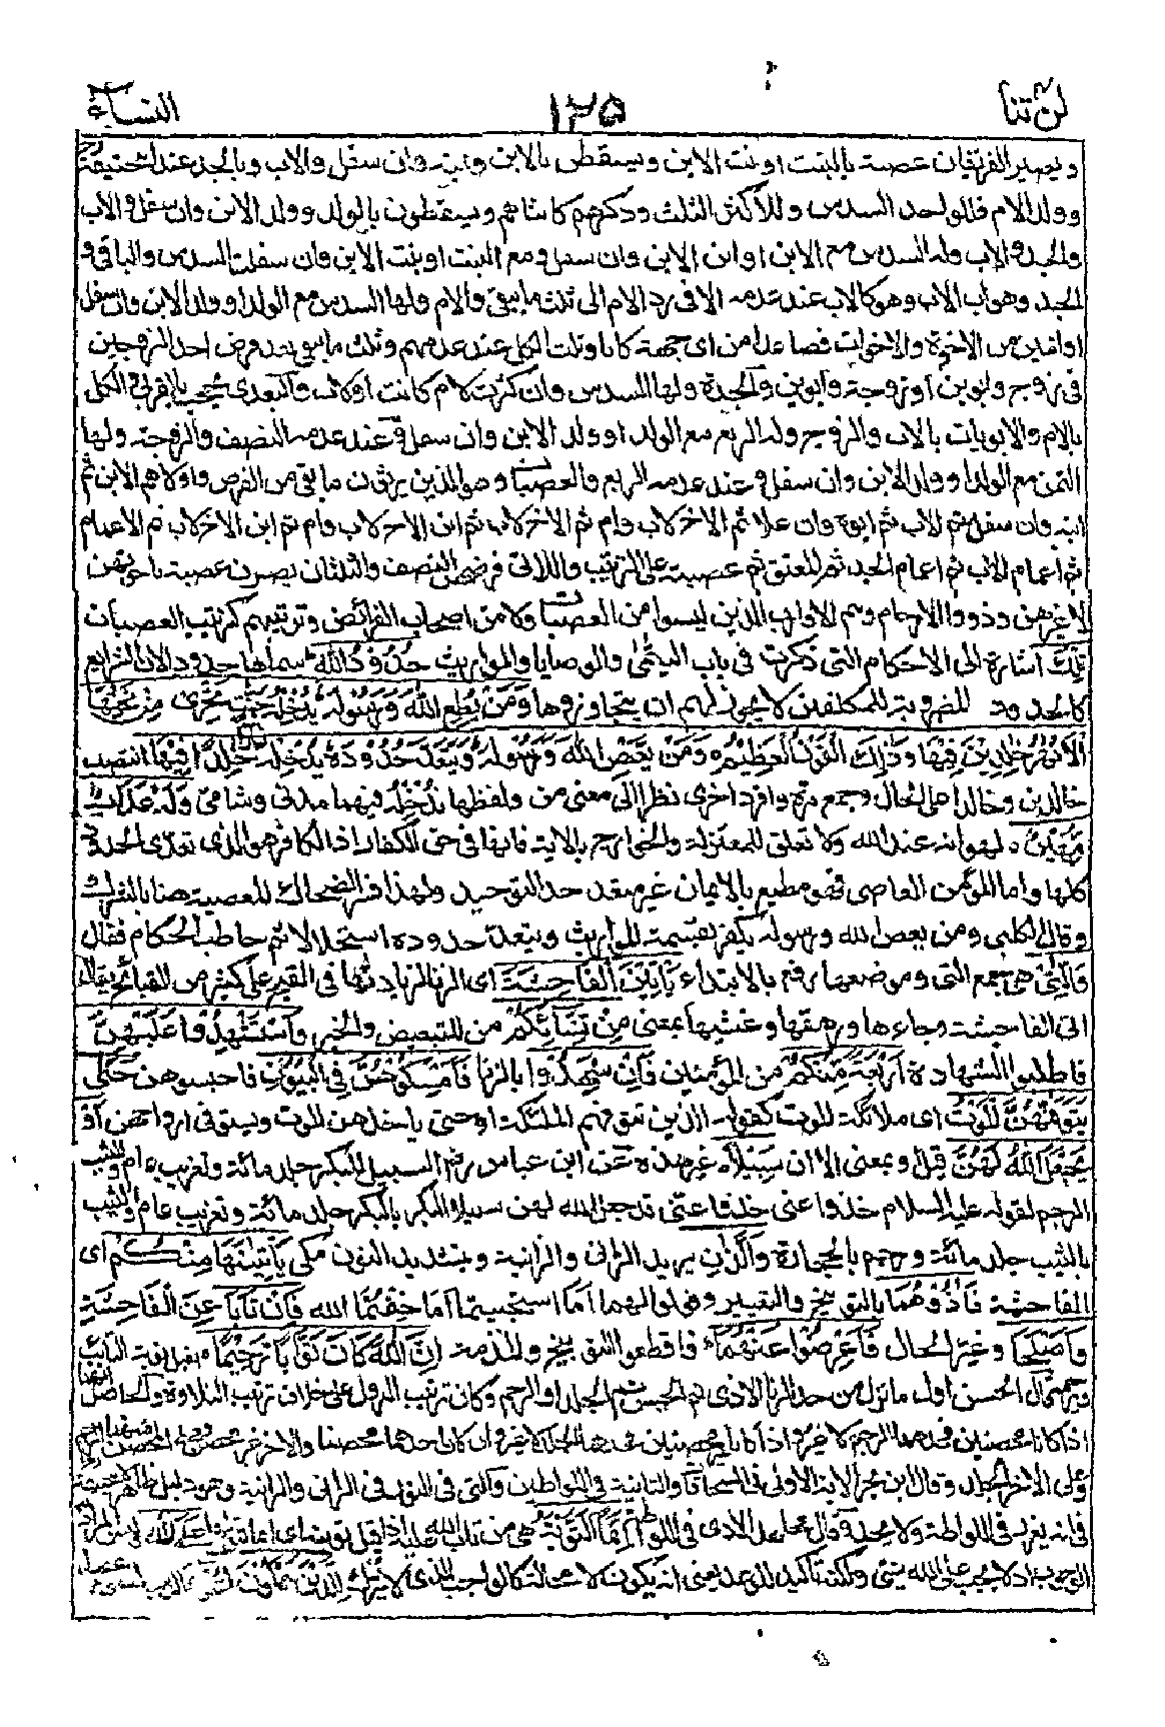 لن تنا ١٢٥ النساء
ويصير الفريقان عصبة بالبنت او بنت الابن ويسقطن بالابن وابنه وان سفل والاب وبالجد عند ابى حنيفة رح
وولد الام فللواحد السدس وللاكثر الثلث وذكرهم كاناثهم ويسقطون بالولد وولد الابن وان سفل والاب
والجد والاب وله السدس مع الابن او ابن الابن وان سفل ومع البنت او بنت الابن وان سفلت السدس والباقى و
الجد وهو اب الاب وهو كالاب عند عدمه الا فى رد الام الى ثلث ما يبقى والام ولها السدس مع الولد او ولد الابن وان سفل
او اثنين من الاخوة والاخوات فصاعدا من اى جهة كانا وثلث الكل عند عدمهم وثلث ما يبقى بعد فرض احد الزوجين
فى زوج وابوين او زوجة وابوين والجدة ولها السدس وان كثرت لام كانت او لاب والبعدى تحجب بالقربى والكل
بالام والابويات بالاب والزوج وله الربع مع الولد او ولد الابن وان سفل وعند عدمه النصف والزوجة ولها
الثمن مع الولد او ولد الابن وان سفل وعند عدمه الربع والعصبات وهم الذين يرثون ما بقى من الفرض واولاهم الابن ثم
ابنه وان سفل ثم الاب ثم ابوه وان علا ثم الاخ لاب وام ثم الاخ لاب ثم ابن الاخ لاب وام ثم ابن الاخ لاب ثم الاعمام
ثم اعمام الاب ثم اعمام الجد ثم المعتق ثم عصبته على الترتيب واللاتى فرضهن النصف والثلثان يصرن عصبة باخوتهن
لا غيرهن وذووا الارحام وهم الاقارب الذين ليسوا من العصبات ولا من اصحاب الفرائض وترتيبهم كترتيب العصبات
تلك اشارة الى الاحكام التى ذكرت فى باب اليتمى والوصايا والمواريث حُدُوْدُ اللهِ سماها حدودا لان الشرائع
كالحدود المضروبة للمكلفين لا يجوز لهم ان يتجاوزوها وَمَنْ يُّطِعِ اللهَ وَرَسُوْلَهُ يُدْخِلْهُ جَنّٰتٍ تَجْرِىْ مِنْ تَحْتِهَا
الْاَنْهٰرُ خٰلِدِيْنَ فِيْهَا وَذٰلِكَ الْفَوْزُ الْعَظِيْمُ وَمَنْ يَّعْصِ اللهَ وَرَسُوْلَهُ وَيَتَعَدَّ حُدُوْدَهٗ يُدْخِلْهُ نَارًا خَالِدًا فِيْهَا انتصب
خالدين وخالدا على الحال وجمع مرة وافرد اخرى نظرا الى معنى من ولفظها نُدْخِلْهُ فيهما مدنى وشامى وَلَهٗ عَذَابٌ
مُّهِيْنٌ ه لهوانه عند الله ولا تعلق للمعتزلة والخوارج بالاية فانها فى حق الكفار اذ الكافر هو الذى تعدى الحدود
كلها واما المؤمن العاصى فهو مطيع بالايمان غير متعد حد التوحيد ولهذا فسر الضحاك المعصية هنا بالشرك
وقال الكلبى ومن يعص الله ورسوله بكفره بقسمة المواريث ويتعد حدوده استحلالا ثم خاطب الحكام فقال
وَالّٰتِىْ هى جمع التى وموضعها رفع بالابتداء يَاْتِيْنَ الْفَاحِشَةَ اى الزنا لزيادتها فى القبح على كثير من القبائح يقال
اتى الفاحشة وجاءها ورهقها وغشيها بمعنى مِنْ نِّسَآئِكُمْ من للتبعيض والخبر وَاسْتَشْهِدُوْا عَلَيْهِنَّ
فاطلبوا الشهادة اَرْبَعَةً مِّنْكُمْ من المؤمنين فَاِنْ شَهِدُوْا بالزنا فَاَمْسِكُوْهُنَّ فِى الْبُيُوْتِ فاحبسوهن حَتّٰى
يَتَوَفّٰهُنَّ الْمَوْتُ اى ملائكة الموت كقوله الذين تتوفهم الملئكة او حتى ياخذهن الموت ويستوفى ارواحهن اَوْ
يَجْعَلَ اللهُ لَهُنَّ قيل او بمعنى الا ان سَبِيْلًا ه غير هذه عن ابن عباس رضه السبيل للبكر جلد مائة وتغريب عام وللثيب
الرجم لقوله عليه السلام خذوا عنى خذوا عنى قد جعل الله لهن سبيلا البكر بالبكر جلد مائة وتغريب عام والثيب
بالثيب جلد مائة ورجم بالحجارة وَالَّذٰنِ يريد الزانى والزانية وبتشديد النون مكى يَاْتِيٰنِهَا مِنْكُمْ اى
الفاحشة فَاٰذُوْهُمَا بالتوبيخ والتعيير وقولوا لهما اما استحييتما اما خفتما الله فَاِنْ تَابَا عن الفاحشة
وَاَصْلَحَا وغيرا الحال فَاَعْرِضُوْا عَنْهُمَا فاقطعوا التوبيخ والمذمة اِنَّ اللهَ كَانَ تَوَّابًا رَّحِيْمًا ه يقبل توبة التائب
ويرحمه قال الحسن اول ما نزل من حد الزنا الاذى ثم الحبس ثم الجلد او الرجم وكان ترتيب النزول على خلاف ترتيب التلاوة والحاصل انهما
اذا كانا محصنين فحدهما الرجم لا غير واذا كانا غير محصنين فحدهما الجلد لا غير وان كان احدهما محصنا والاخر غير محصن فعلى المحصن منهما الرجم
وعلى الاخر الجلد وقال ابن بحر الاية الاولى فى السحاقات والثانية فى اللواطين والتى فى النور فى الزانى والزانية وهو دليل ظاهر لابى حنيفة
فى انه يعزر فى اللواطة ولا يحد وقال مجاهد اية الاذى فى اللواطة اِنَّمَا التَّوْبَةُ هى من تاب الله عليه اذا قبل توبته اى انما قبولها عَلَى اللهِ وليس المراد
الوجوب اذ لا يجب على الله شىء ولكنه تأكيد للوعد يعنى انه يكون لا محالة كالواجب الذى لا يترك لِلَّذِيْنَ يَعْمَلُوْنَ السُّوْءَ